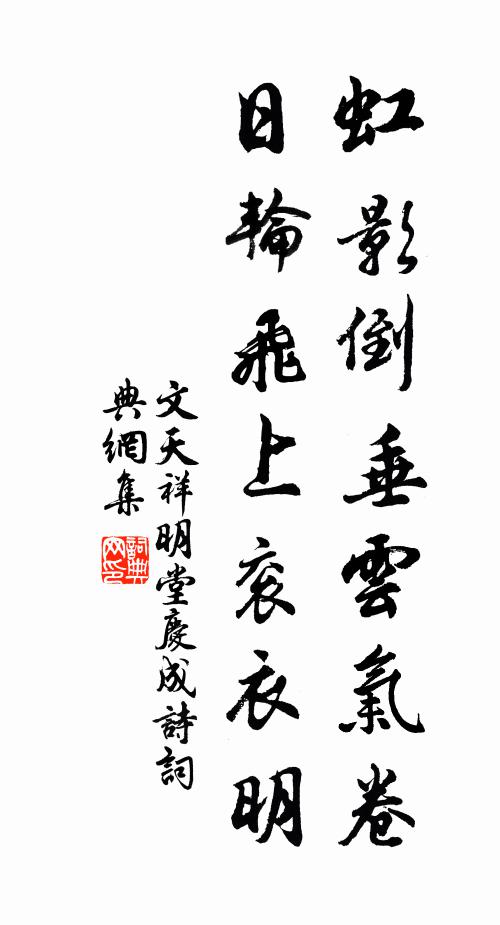 虹影倒垂雲氣卷
日輪飛上衮衣明
文天祥明堂慶成詩詞
典網集
詞典網印